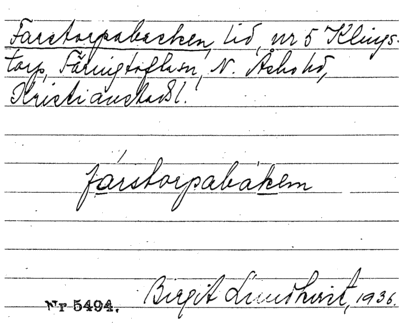 Farstorpabacken, lid, nr 5 Klings-
torp, Färingtoftasn, N. Åsbo hd,
Kristianstads l.
fárstorpabákem
Nr 5494. Birgit Lundkvist, 1936.